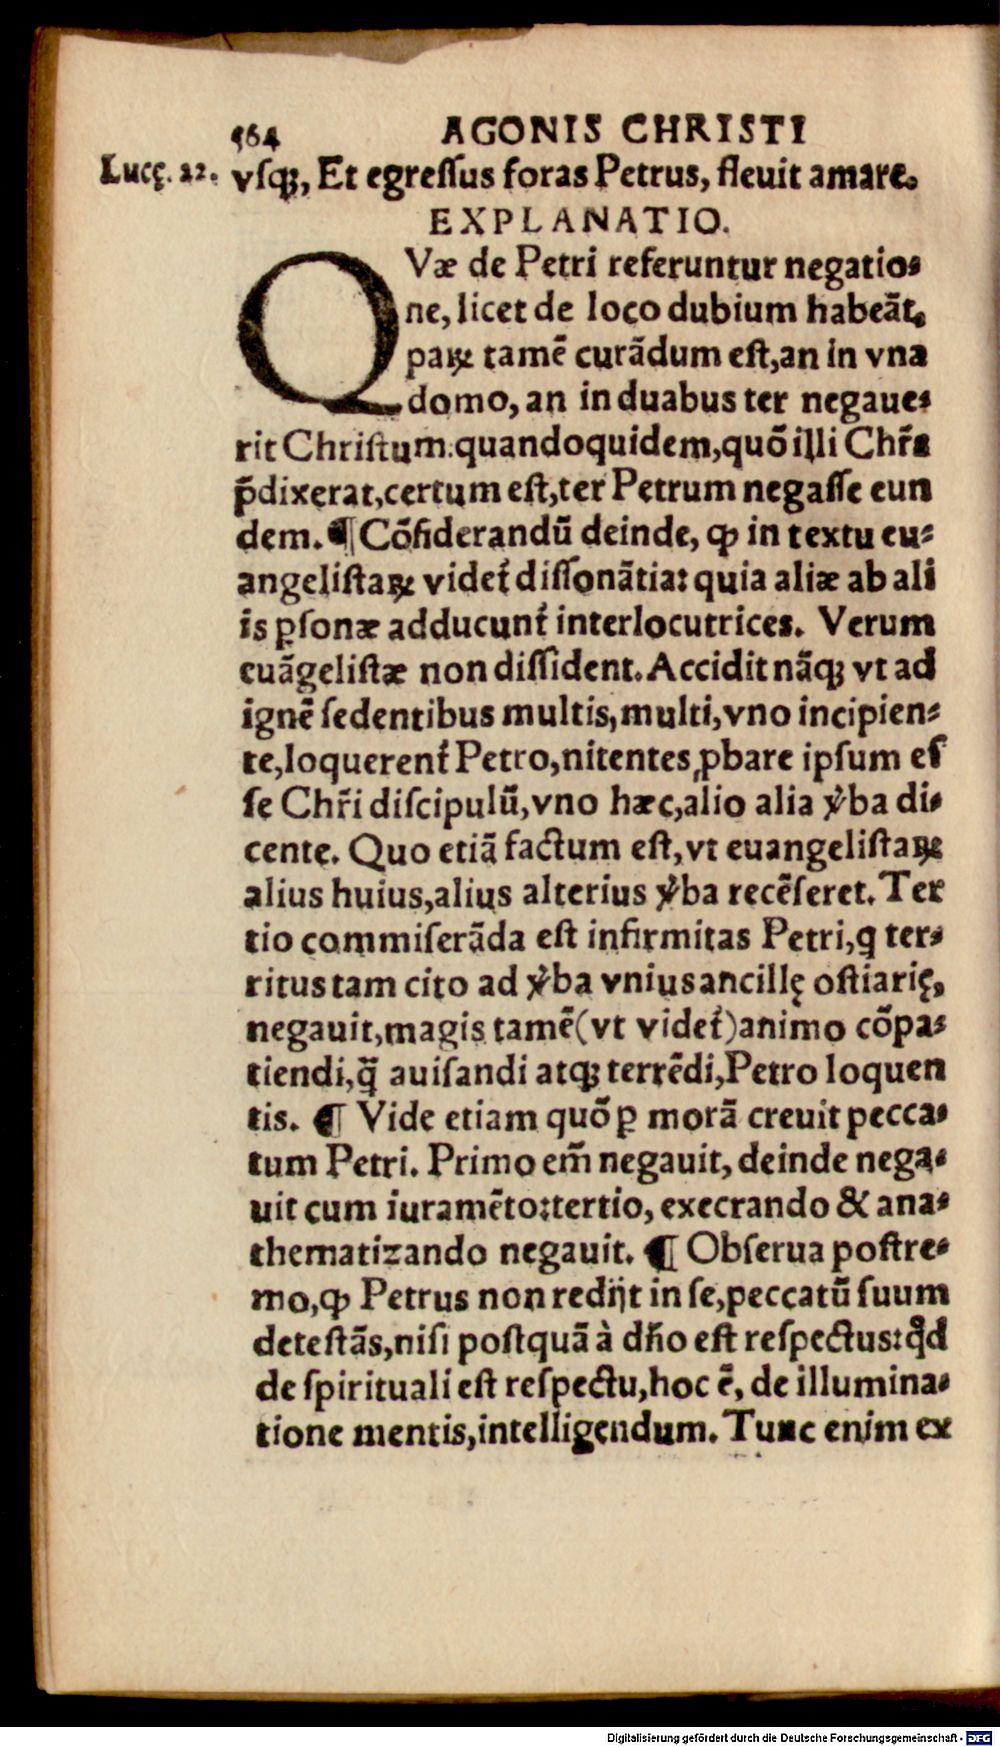 564 AGONIS CHRISTI
Lucę. 22. vſq;, Et egreſſus foras Petrus, fleuit amare.
EXPLANATIO.
QVæ de Petri referuntur negatio-
ne, licet de loco dubium habeãt,
paꝝ tamẽ curãdum eſt,an in vna
domo, an in duabus ter negaue-
rit Chriſtum: quandoquidem,quõ illi Chr̃s
p̃dixerat,certum eſt,ter Petrum negaſſe eun
dem. ¶ Cõſiderandũ deinde, ꝙ in textu eu-
angeliſtaꝝ videt᷑ diſſonãtia: quia aliæ ab ali
is ꝑſonæ adducunt᷑ interlocutrices. Verum
euãgeliſtæ non diſſident. Accidit nãq; vt ad
ignẽ ſedentibus multis,multi,vno incipien-
te,loquerent᷑ Petro,nitentes ꝓbare ipſum eſ
ſe Chr̃i diſcipulũ,vno hæc,alio alia v̓ba di-
cente. Quo etiã factum eſt,vt euangeliſtaꝝ
alius huius,alius alterius v̓ba recẽſeret. Ter
tio commiſerãda eſt infirmitas Petri,q ter-
ritus tam cito ad v̓ba vnius ancillę oſtiarię,
negauit,magis tamẽ(vt videt᷑)animo cõpa-
tiendi,q̃ auiſandi atq; terrẽdi,Petro loquen
tis. ¶ Vide etiam quõ ꝑ morã creuit pecca-
tum Petri. Primo em̃ negauit, deinde nega-
uit cum iuramẽto:tertio, execrando & ana-
thematizando negauit. ¶ Obſerua poſtre-
mo,ꝙ Petrus non redijt in ſe,peccatũ ſuum
deteſtãs,niſi poſtquã à dño eſt reſpectus:qd̓
de ſpirituali eſt reſpectu,hoc ẽ, de illumina-
tione mentis,intelligendum. Tunc enim ex
Digitalisierung gefördert durch die Deutsche Forschungsgemeinschaft - DFG